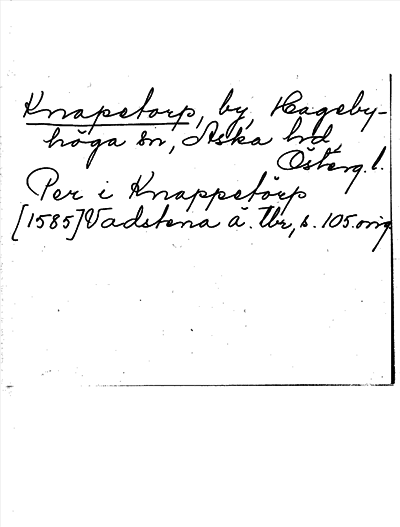 Knapetorp, by, Hageby-
höga sn, Aska hd,
Österg. l.
Per i Knappetörp
[1585] Vadstena ä. tbr, s. 105. orig